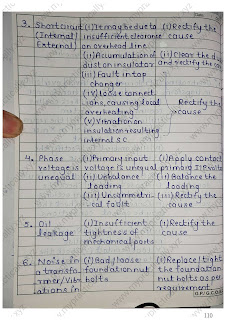 3. Short circuit (i) It may be due to (i) Rectify the
(Internal/ insufficient clearance cause
External) on overhead line
(ii) Accumulation of (ii) Clear the dust
dust on insulator and rectify the
(iii) Fault in tap
changer
(iv) Loose connect
ions, causing local Rectify the
overheating cause
(v) Vibration on
insulation resulting
internal S.C
4. Phase (i) Primary input (i) Apply correct
voltage is voltage is unequal primary I/P voltage
unequal (ii) Unbalance (ii) Balance the
loading loading
(iii) Unsymmetri- (iii) Rectify the
cal fault cause
5. Oil (i) Insufficient (i) Rectify the
leakage tightness of cause
mechanical parts
6. Noise in (i) Bad/loose (i) Replace/tight
a transfo- foundation nut the foundation
rmer/Vibr bolts nut bolts as per
ations in requirement
110